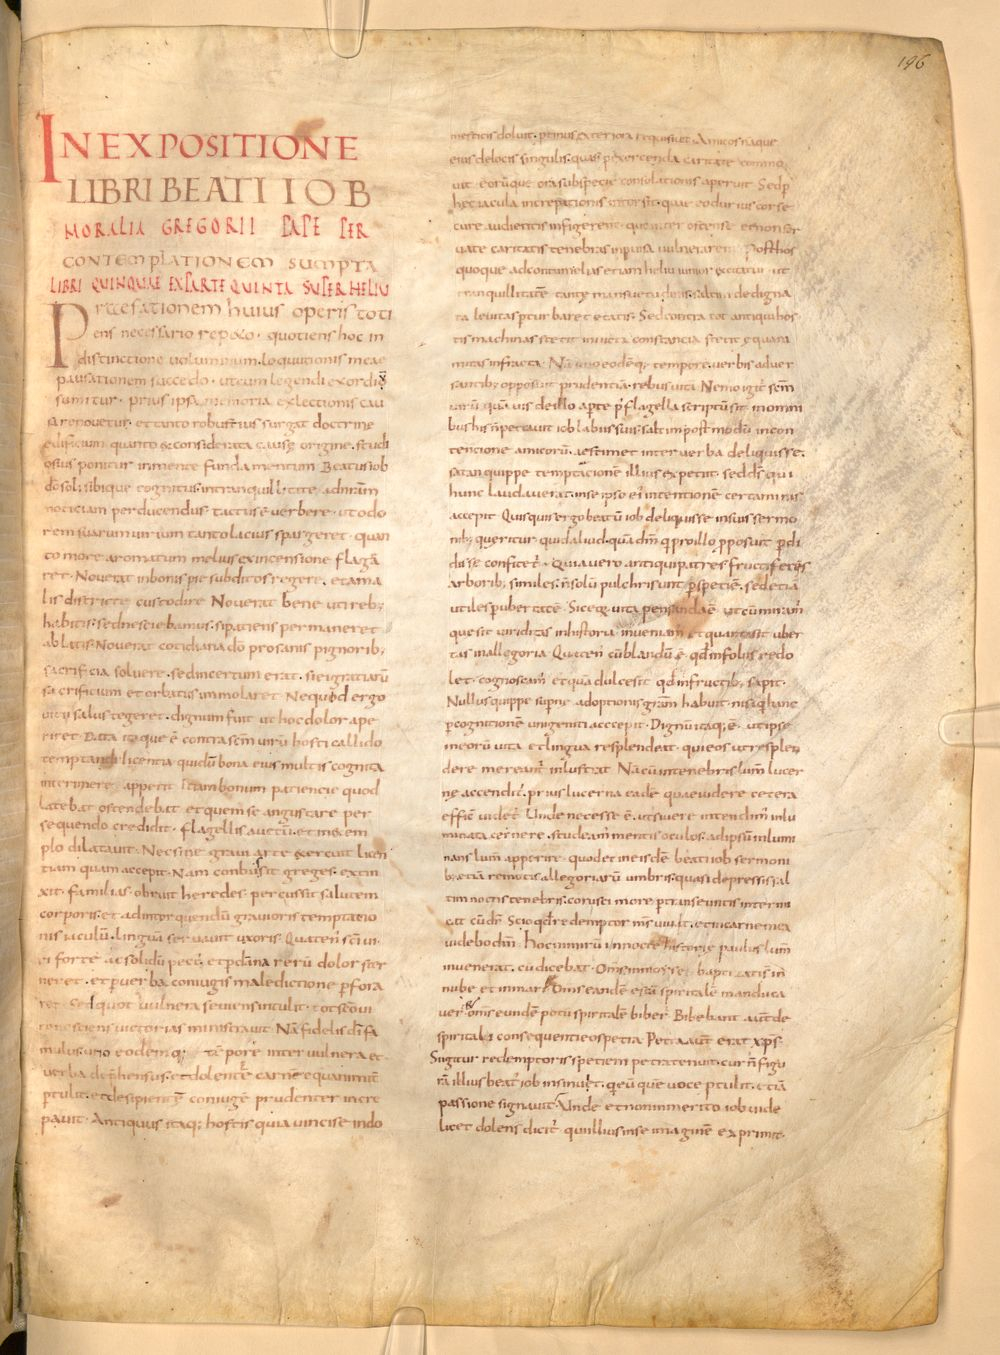 196
IN EXPOSITIONE
LIBRI BEATI IOB
MORALIA GREGORII PAPE PER
CONTEMPLATIONEM SUMPTA
LIBRI QUINQUAE EX PARTE QUINTA SUPER HELIU
Praefationem huius operis toti
ens necessario repeto. quotiens hoc in
distinctione voluminum. loquutionis meae
pausationem succedo. ut cum legendi exordiũ
sumitur. prius ipsa memoria ex lectionis cau
sa renovetur. et tanto robustius surgat doctrine
edificium quanto & considerata causę origine. studi
osius ponitur in mente fundamentum Beatus iob
dõ soli sibique cognitus in tranquillitate ad nr̃am
noticiam perducendus tactus ẽ verbere. ut odo
rem suarum virium tanto lacius spargeret. quan
to more aromatum melius ex incensione flagra
ret. Noverat in bonis pie subditos regere. et a ma
lis districte custodire Noverat bene uti reb;
habitis. sed nesciebamus. si patiens permaneret
ablatis. Noverat cotidiana dõ pro sanis pignorib;
sacrificia solvere. sed incertum erat. si ei gratiarũ
sacrificium et orbatus immolaret Ne quid ergo
vitii salus tegeret. dignum fuit ut hoc dolor ape
riret Data itaque ẽ contra scm̃ virũ hosti callido
temptandi licentia qui dũ bona eius multis cognita
interimere appetit etiam bonum patiencie quod
latebat ostendebat et quem se angustare per
sequendo credidit. flagellis auctũ. et in exem
plo dilatavit. Nec sine gravi arte exercuit licen
tiam quam accepit. Nam conbussit greges. extin
xit familias. obruit heredes. percussit salutem
corporis. et ad intorquendũ gravioris temptatio
nis iaculũ. linguã servavit uxoris. Quaten sci vi
ri forte ac solidũ pect; et p dãna rerũ dolor ster
neret. et p verba coniugis maledictione pfora
ret. Sed quot vulnera seviens intulit. tot scõ vi
ro nesciens victorias ministravit Nã fidelis di fa
mulus. uno eodemq; tẽpore inter vulnera et
verba dephensus. et dolentẽ carnẽ equanimit
ptulit. et desipientẽ coniugẽ prudenter incre
pavit. Antiquus itaq; hostis quia vinci se in do
mesticis doluit. ptinus exteriora requisivit. Amicos nãque
eius de locis singulis. quasi p exercenda caritate commo
vit. eorũque ora sub specie consolationis aperuit Sed p
hec iacula increpationis intorsit. quae eo durius corse
cure audientis infigerent. quo inter ostense et non ser
vate caritatis tenebras inpvisa vulnerarent Post hos
quoque ad contumelias etiam heliu iunior excitatur. ut
tranquillitatẽ tantę mansuetudinis. saltim dedigna
ta levitas pturbaret etatis. Sed contra tot antiqui hos
tis machinas stetit invicta constancia stetit equani
mitas infracta. Nã uno eodẽq; tempore. verbis adver
santib; opposuit prudentiã. rebus vitã. Nemo igit̃ scm̃
virũ quãvis de illo aperte p flagella scriptũ sit. in omni
bus his ñ peccavit iob labiis suis. saltim postmodũ in con
tencione amicorũ. aestimet inter verba deliquisse.
satan quippe temptacionẽ illius expetiit. sed ds̃ qui
hunc laudaverat. in se ipso ei intentionẽ certaminis
accepit Quisquis ergo beatũ iob deliquisse in suis sermo
nib; queritur. quid aliud. quã dm̃ q pro illo pposuit pdi
disse confitet̃. Quia vero antiqui patres fructiferis
arborib; similes. ñ solũ pulchri sunt p speciẽ. sed etiã
utiles p ubertatẽ. Sic eoꝝ vita pensanda ẽ. ut cũ miram
que sit viriditas in historia. inveniam et quanta sit uber
tas in allegoria Quaten cũ blandũ ẽ. qd in foliis redo
let. cognoscam et quã dulce sit qd in fructib; sapit.
Nullus quippe supne adoptionis gr̃am habuit. nisi q hanc
p cognitionẽ unigeniti accepit. Dignũ itaq; ẽ. ut ipse
in eorũ vita et lingua resplendeat. qui eos ut resplen
dere mereant̃ inlustrat Nã cũ in tenebris lum lucer
nę accendit̃. prius lucerna eadẽ quae videre cetera
efficit videt̃. Unde necesse ẽ. ut si vere intendim̃ inlu
minata cernere. studeam mentis oculos. ad ipsũ inlumi
nans lum apperire. quod et in eisdẽ beati iob sermoni
b; etiã remotis allegoriarũ umbris. quasi depressis al
tim noctis tenebris. corusci more ptranseuntis intermi
cat cũ dr̃. Scio qd redemptor ms̃ vivit. et in carne mea
videbo dm̃ Hoc nimirũ in nocte historię paulus lum
invenerat. cũ dicebat. Omñs in moyse baptizati sñ
nube et in mari Omñs eandẽ escã spiritalẽ manduca
ver̃. omñs eundẽ potũ spiritalẽ biber̃ Bibebant aut̃ de
spiritali consequente eos petra Petra aut̃ erat xps̃
Si igitur redemptoris speciem petra tenuit. cur ñ figu
rã illius beat; iob insinuet. q eũ que voce ptulit. etiã
passione signavit. Unde et non inmerito iob vide
licet dolens dicit̃. qui illius in se imaginẽ exprimit.